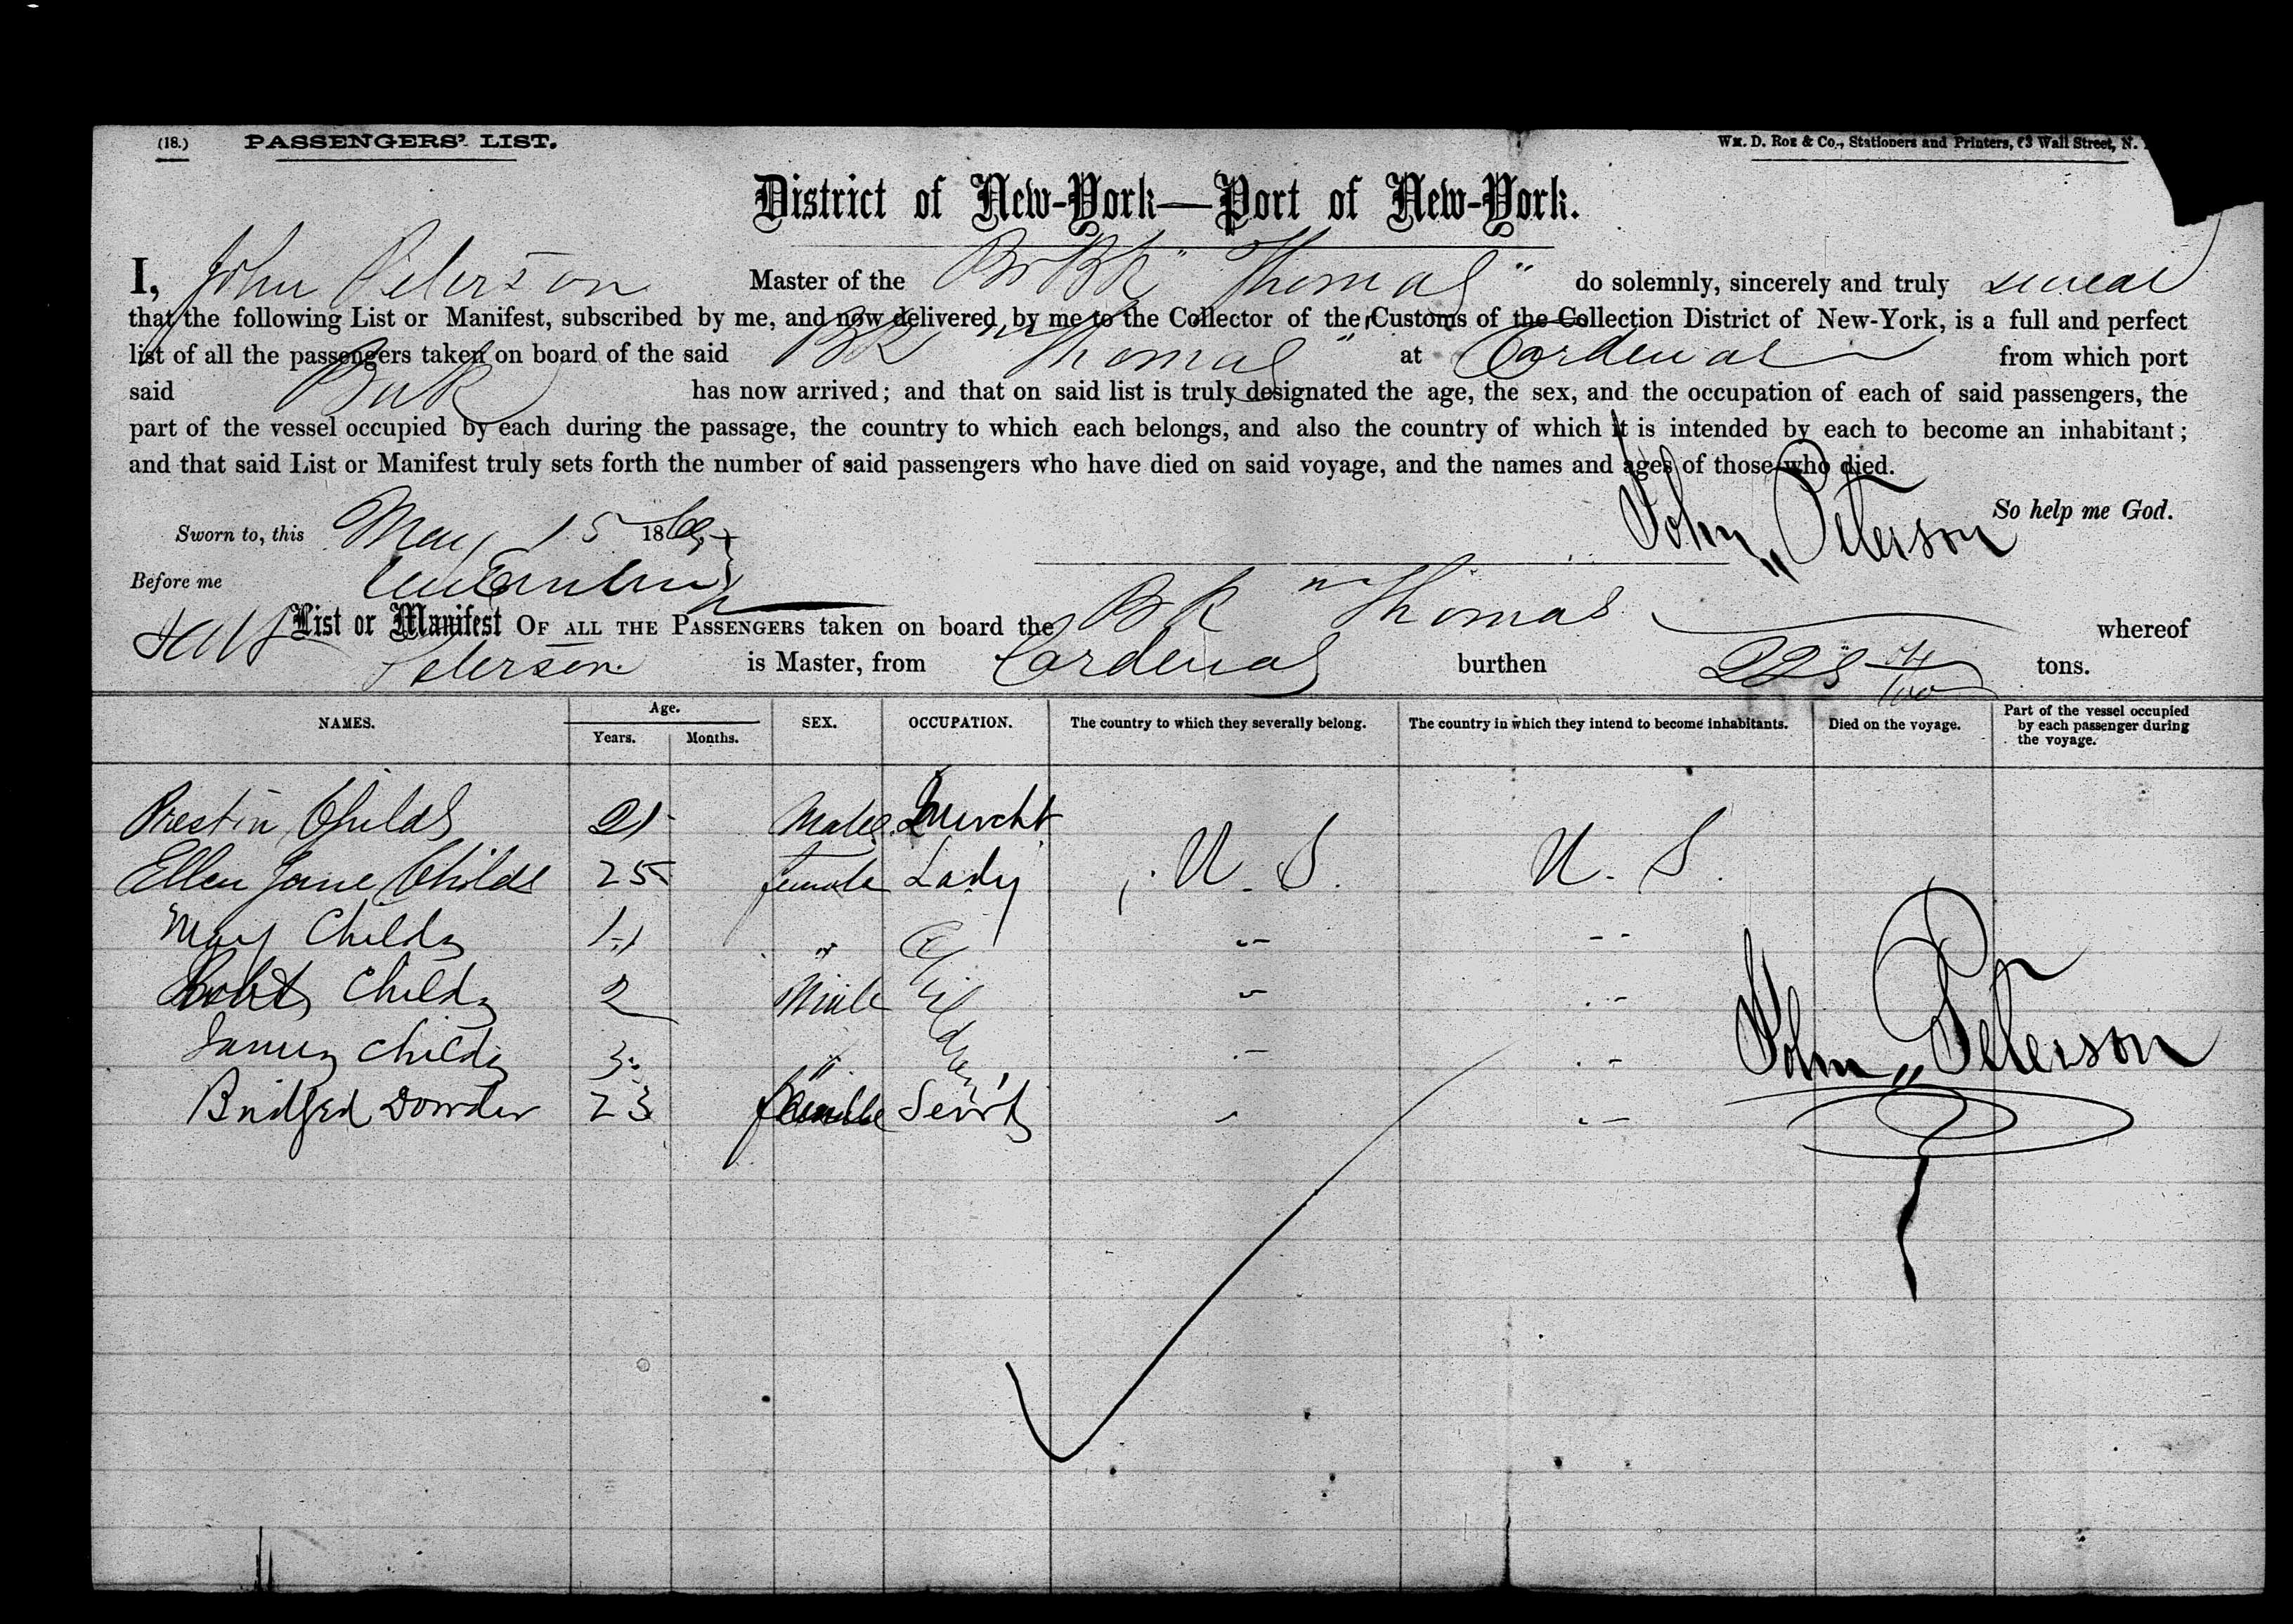 (18.) PASSENGERS' LIST. Wm. D. Roe & Co., Stationers and Printers, 63 Wall Street, N.
District of New-York—Port of New-York.
I, John Peterson Master of the Br Bk "Thomas" do solemnly, sincerely and truly swear
that the following List or Manifest, subscribed by me, and now delivered by me to the Collector of the Customs of the Collection District of New-York, is a full and perfect
list of all the passengers taken on board of the said Bk "Thomas" at Cardenas from which port
said Bark has now arrived; and that on said list is truly designated the age, the sex, and the occupation of each of said passengers, the
part of the vessel occupied by each during the passage, the country to which each belongs, and also the country of which it is intended by each to become an inhabitant;
and that said List or Manifest truly sets forth the number of said passengers who have died on said voyage, and the names and ages of those who died.
So help me God.
Sworn to, this May 15 186 John Peterson
Before me
List or Manifest OF ALL THE PASSENGERS taken on board the Bk "Thomas whereof
Peterson is Master, from Cardenas burthen tons.
NAMES. Age. Years. Months. SEX. OCCUPATION. The country to which they severally belong. The country in which they intend to become inhabitants. Died on the voyage. Part of the vessel occupied by each passenger during the voyage.
Preston Childs Male Mercht U. S. U. S.
Ellen Jane Childs 25 female Lady
May Childs " Children
Robt Childs 2 Male
James Childs 3 "
Bridged Dowder 23 female Servt
John Peterson